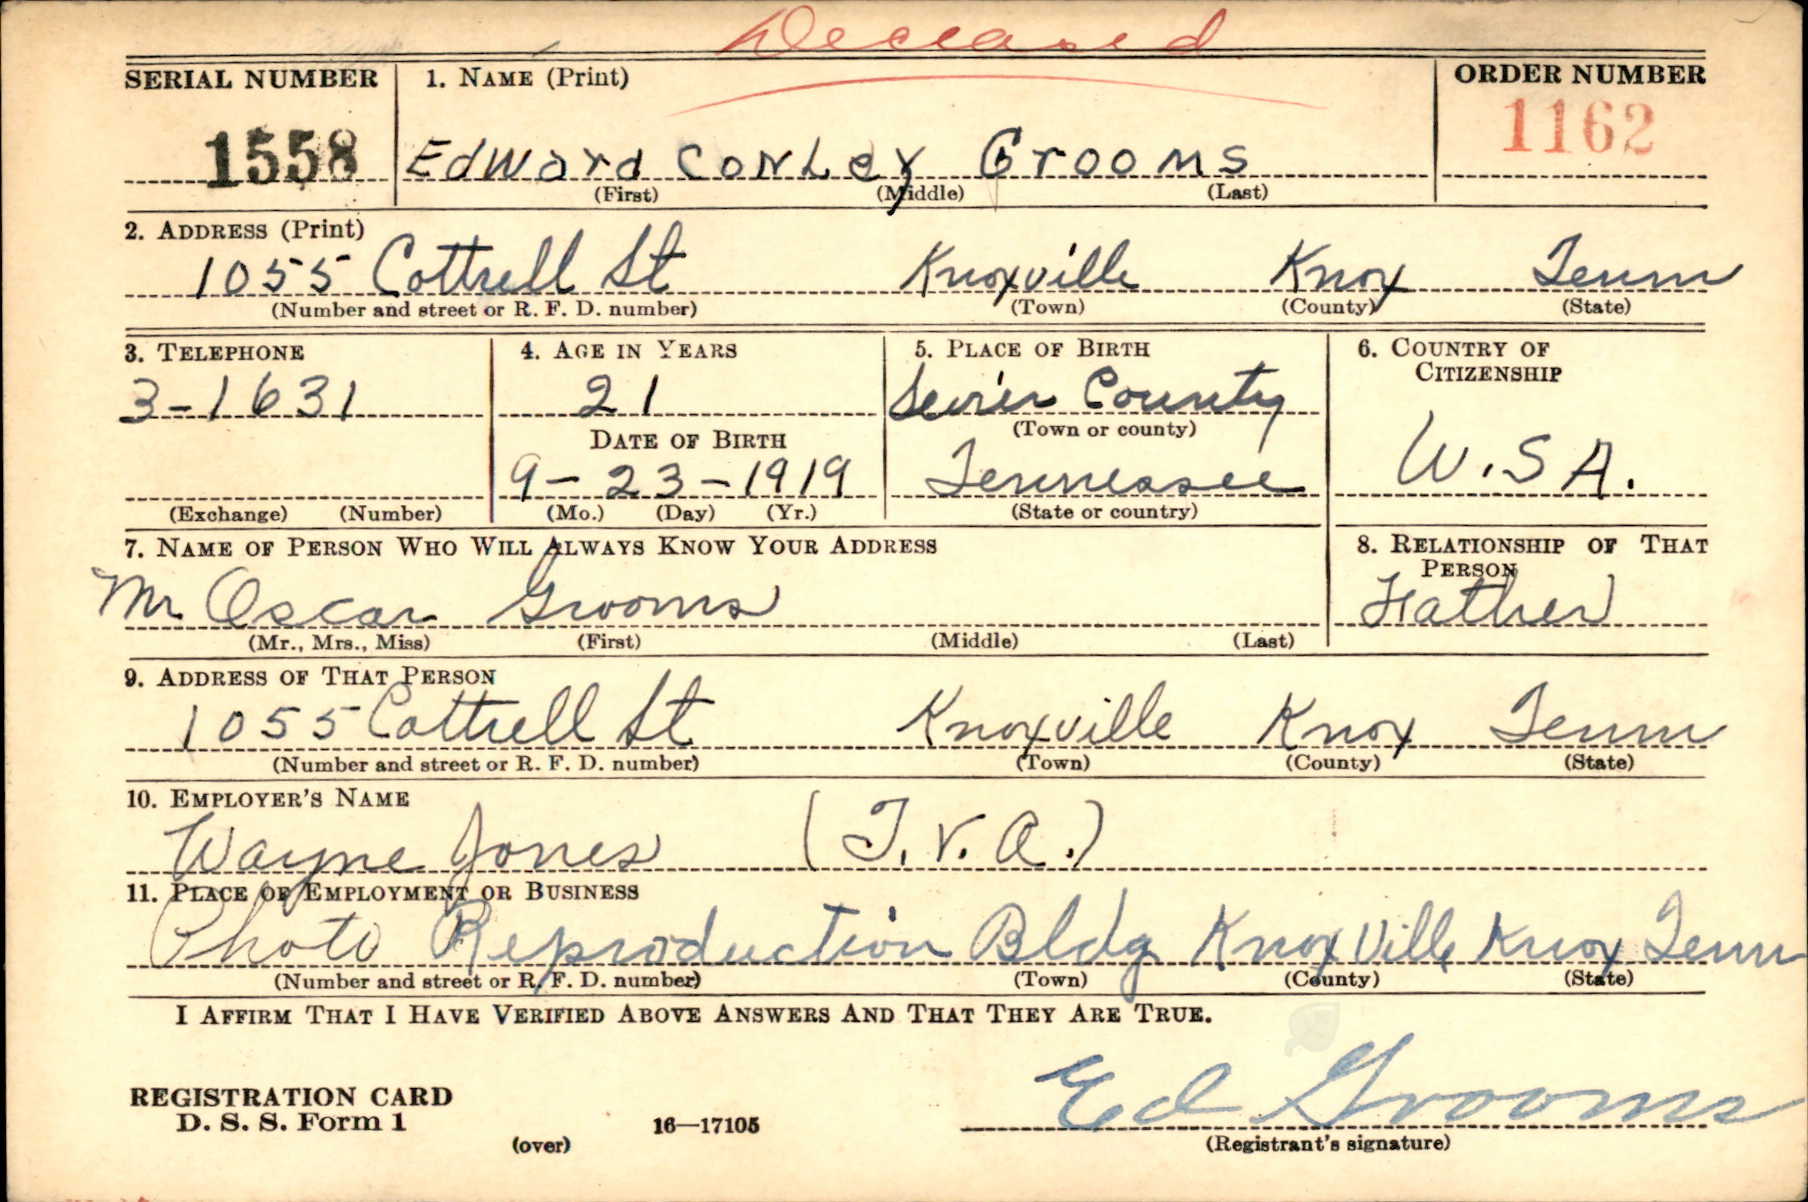 Deceased
SERIAL NUMBER 1. NAME (Print) ORDER NUMBER
1558 Edward Conley Grooms 1162
(First) (Middle) (Last)
2. ADDRESS (Print)
1055 Cottrell St Knoxville Knox Tenn
(Number and street or R. F. D. number) (Town) (County) (State)
3. TELEPHONE 4. AGE IN YEARS 5. PLACE OF BIRTH 6. COUNTRY OF CITIZENSHIP
3-1631 21 Sevier County
(Town or county)
DATE OF BIRTH U.S.A.
9-23-1919 Tennessee
(Exchange) (Number) (Mo.) (Day) (Yr.) (State or country)
7. NAME OF PERSON WHO WILL ALWAYS KNOW YOUR ADDRESS 8. RELATIONSHIP OF THAT PERSON
Mr Oscar Grooms Father
(Mr., Mrs., Miss) (First) (Middle) (Last)
9. ADDRESS OF THAT PERSON
1055 Cottrell St Knoxville Knox Tenn
(Number and street or R. F. D. number) (Town) (County) (State)
10. EMPLOYER'S NAME
Wayne Jones (T.V.A.)
11. PLACE OF EMPLOYMENT OR BUSINESS
Photo Reproduction Bldg KnoxVille Knox Tenn
(Number and street or R. F. D. number) (Town) (County) (State)
I AFFIRM THAT I HAVE VERIFIED ABOVE ANSWERS AND THAT THEY ARE TRUE.
Ed Grooms
REGISTRATION CARD
D. S. S. Form 1 16—17105
(over) (Registrant's signature)